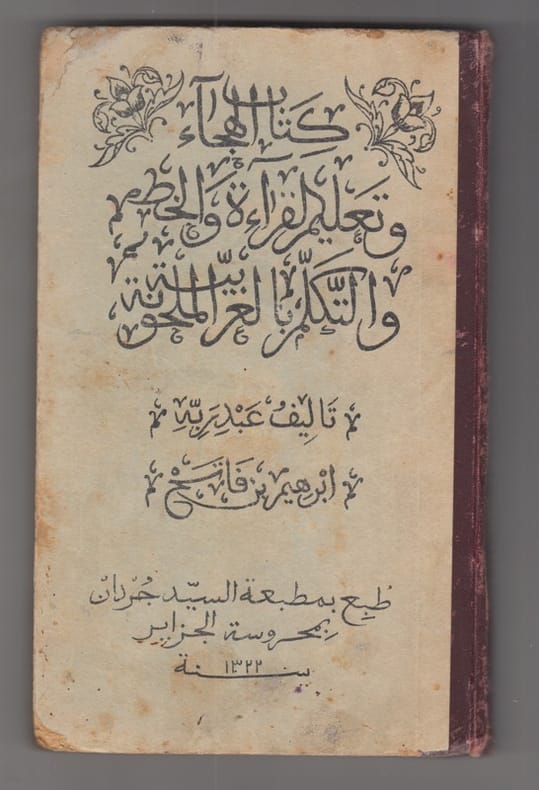 كِتَابُ الهِجَآء
وتَعْلِيمِ القِرَآءة وَالخَطِّ
والتَّكَلُّمِ بالعربيّة الملحونة
تَالِيفُ عَبْدِ رَبِّهِ
ابْرهيم بن فَاتَحْ
طُبِع بمطبعة السيّد جُرْدَان
بِمحروسة الجزاير
سنة ١٣٢٢